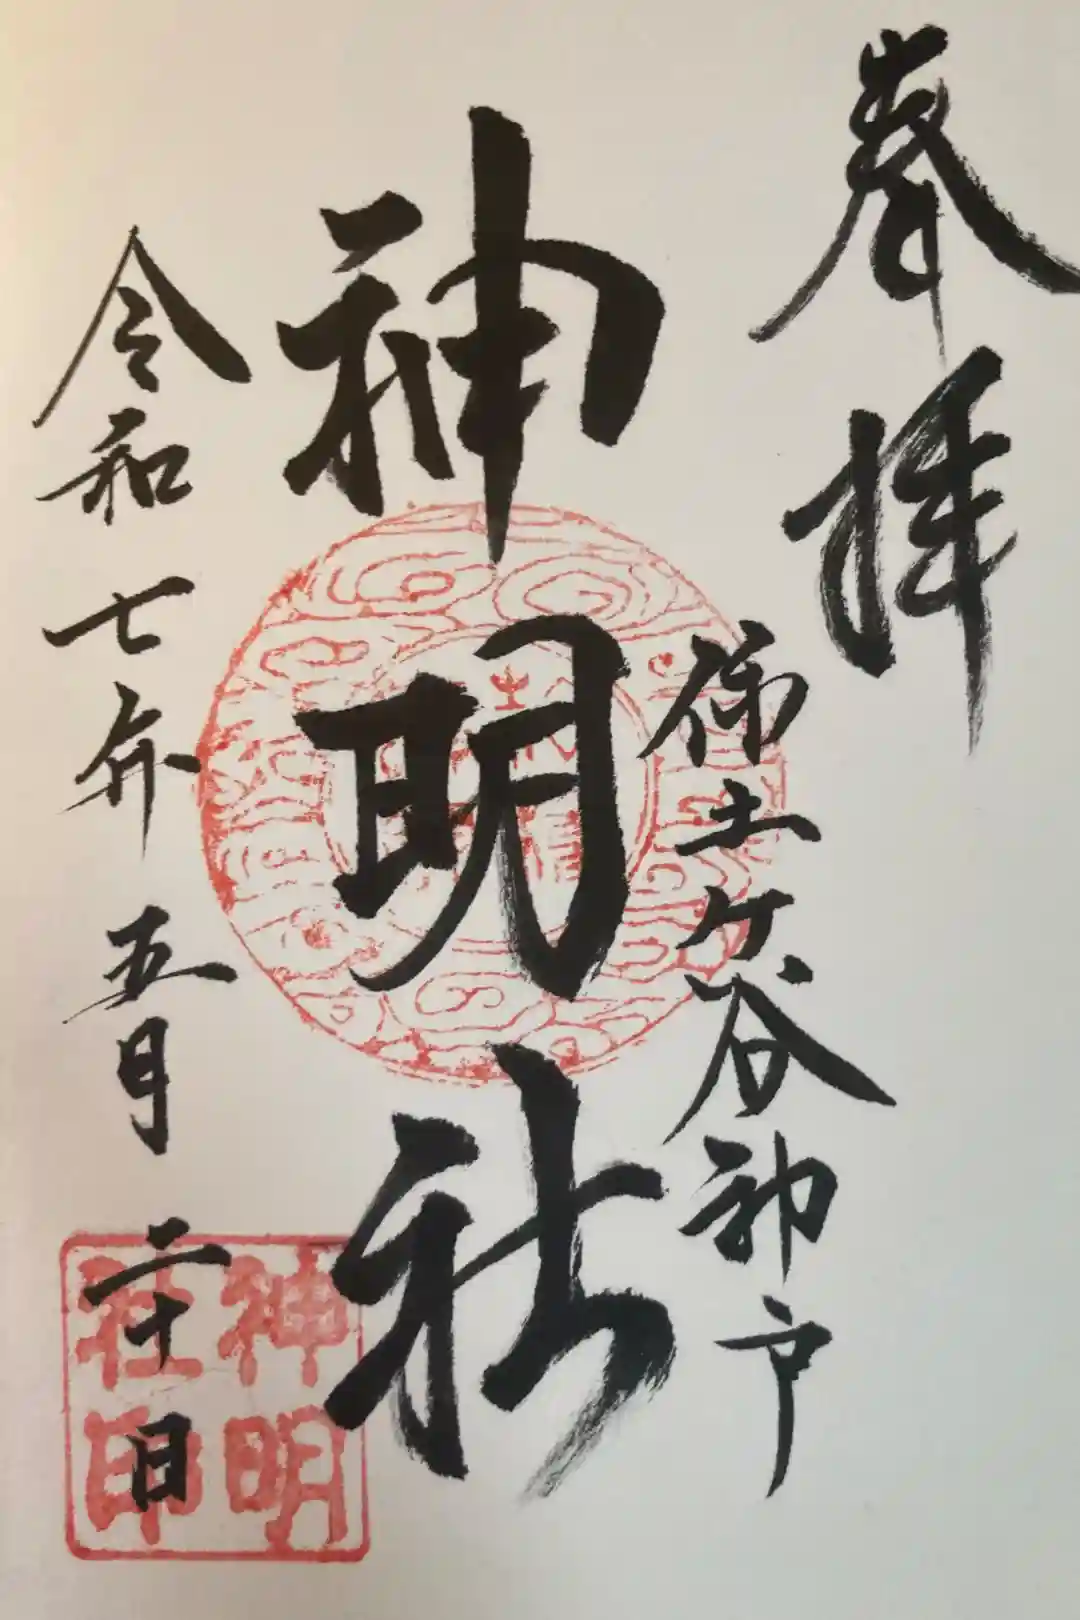 奉拝
保土ヶ谷神戸
神明社
令和七年五月二十日
神明
社印